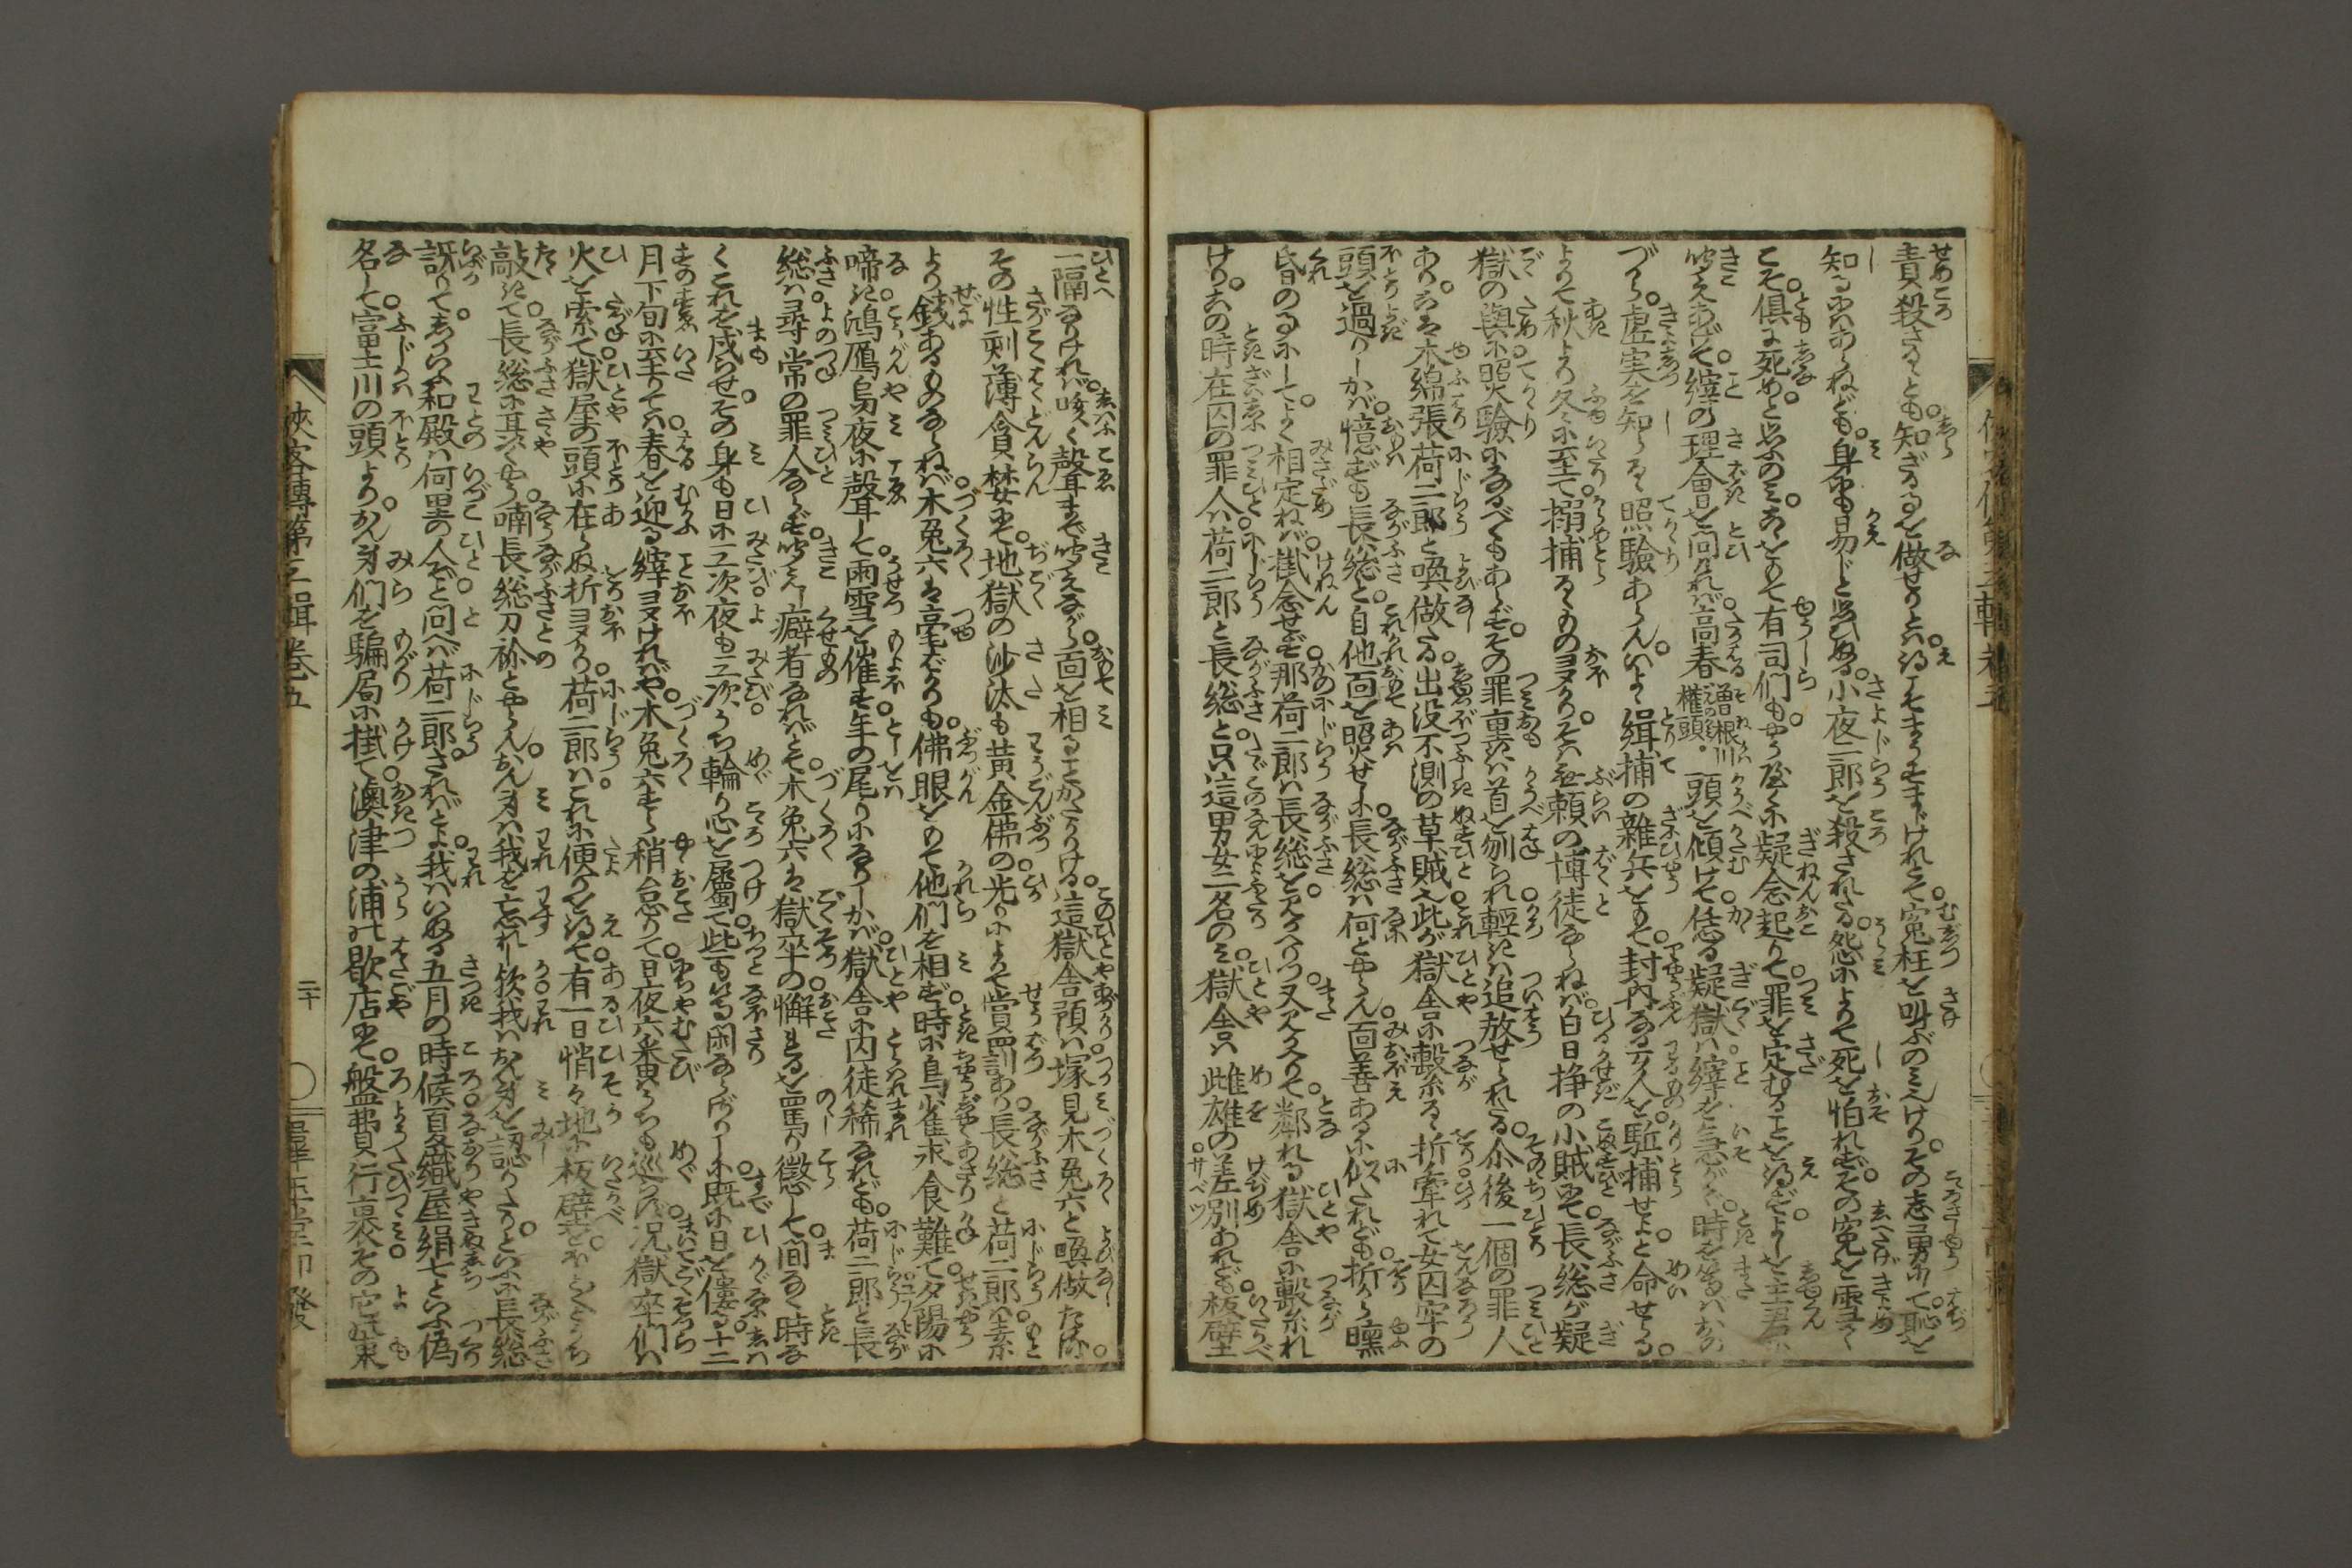 責殺さるゝとも。知ざるを做せりとは得こそまうすまじけれとて寃枉を叫ぶのみなりけり。その志勇にて。恥を
知るにはあらねども。身の易じと思ひぬる。小夜二郎を殺されたる。怨によりて死を怕れず。その寃を雪く
こそ。倶に死めと思ふのみ。是をもて有司們も。やうやくに疑念起りて。罪を定むることを得ず。よしを主君に
聞えあげて。縡の理會を問れば。高春 曽根川權頭。頭を傾けて。恁る疑獄は。縡を急がず。時を等ばおの
づから。虚実を知らるゝ照驗あらん。いよゝ緝捕の雜兵をもて。封内なる歹人を。駈捕せよと。命せらる。
よりて秋より冬に至て。搦捕るゝもの多かり。そは無頼の博徒ならねば。白日挊の小賊にて。長総が疑
獄の與に。照驗になるべくもあらず。その罪重きは首を刎られ輕きは追放せられたる。尒後一個の罪人
あり。是は木綿張荷二郎と喚做たる。出没不測の草賊也。此が獄舎に繋るゝ折牽れて女囚牢の
頭を過りしかば。憶ずも長総と。自他面を照せしに。長総は何とやらん。面善あるに似たれども。折から曛
昏のころにして。よく相定ねば。掛念せず。那荷二郎は長総を。見かへりつ又見かへりて。鄰れる獄舎に繋れ
けり。是の時在囚の罪人は。荷二郎と長総と。只這男女二名のみ。獄舎は雌雄の差別あれども。板壁
一隔なりければ。咳く聲まで聞えながら。面を相ることかたかりける。這獄舎預は。塚見木兔六と喚做たる。
その性剋薄貪婪にて。地獄の沙汰も黄金佛の。光りによりて賞罰あり。長総と荷二郎は。素
より銭あるものならねば。木兔六は毫ばかりも。佛眼をもて他們を相ず。時に鳥雀求食難て。夕陽に
啼き鴻鴈烏夜に聲して。雨雪を催す。年の尾りになりしかば。獄舎に内徒稀なれども。荷二郎と長
総は。尋常の罪人ならず。聞えし癖者なればとて。木兔六は獄卒の。懈れるを罵り懲して。間なく時な
くこれを戍らせ。その身も日に三次。夜も三次うち輪り。心を屬て。些も等閑ならざりしに。既に日を僂る。十二
月下旬に至りては。春を迎る縡多ければや。木兔六すら稍怠りて。日夜六番はうちも巡らず。况獄卒們は
火を索て。獄屋の頭に在らぬ折多かり。荷二郎はこれに便りを得て。有一日悄々地に板壁を。ほと〳〵とうち
敲きて。長総に耳語くやう。喃長総刀祢とやらん。おん身は我を忘れし欤。我はおん身を認りたりといふに長総
訝りて。しらず和殿は何里の人ぞと問へば荷二郎。さればとよ。我はいぬる五月の時候。夏蚕織屋絹七といふ。偽
名して。富士川の頭より。おん身們を騙局に掛て。澳津の浦の歇店にて。盤費行裹その它裹
侠客傳第三輯卷五
二十
群玉堂印發